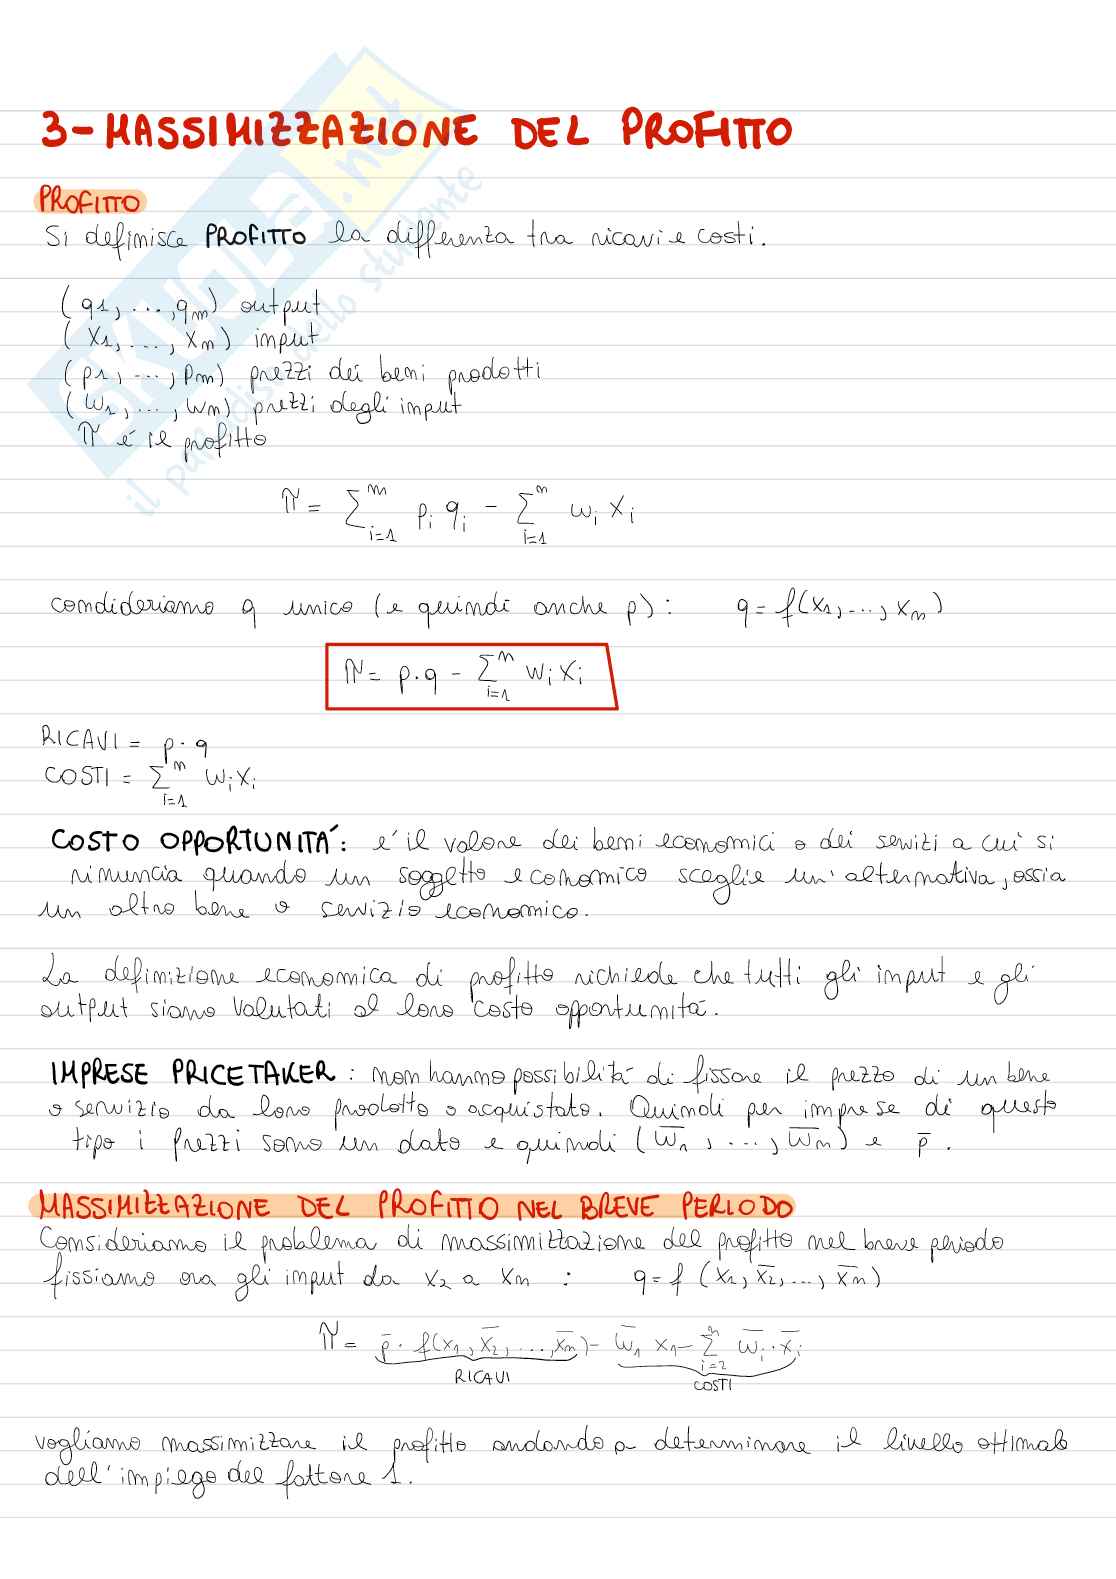 3- MASSIMIZZAZIONE DEL PROFITTO
PROFITTO
Si definisce PROFITTO la differenza tra ricavi e costi.
(q1, ..., qm) output
(x1, ..., xn) input
(p1, ..., pm) prezzi dei beni prodotti
(w1, ..., wn) prezzi degli input
π é il profitto
π = ∑_{i=1}^{m} p_i q_i - ∑_{i=1}^{n} w_i x_i
condideriamo q unico (e quindi anche p): q = f(x1, ..., xn)
π = p·q - ∑_{i=1}^{n} w_i x_i
RICAVI = p·q
COSTI = ∑_{i=1}^{n} w_i x_i
COSTO OPPORTUNITÁ: e' il valore dei beni economici o dei servizi a cui si
rinuncia quando un soggetto economico sceglie un'alternativa, ossia
un altro bene o servizio economico.
La definizione economica di profitto richiede che tutti gli input e gli
output siano valutati al loro costo opportunitá.
IMPRESE PRICETAKER: non hanno possibilitá di fissare il prezzo di un bene
o servizio da loro prodotto o acquistato. Quindi per imprese di questo
tipo i prezzi sono un dato e quindi (w̅1, ..., w̅n) e p̅.
MASSIMIZZAZIONE DEL PROFITTO NEL BREVE PERIODO
Consideriamo il problema di massimizzazione del profitto nel breve periodo
fissiamo ora gli input da x2 a xn : q = f (x1, x̅2, ..., x̅n)
π = p̅ · f(x1, x̅2, ..., x̅n) - w̅1 x1 - ∑_{i=2}^{n} w̅_i · x̅_i
RICAVI COSTI
vogliamo massimizzare il profitto andando a determinare il livello ottimale
dell'impiego del fattore 1.
SKUOLA.net
il paradiso dello studente